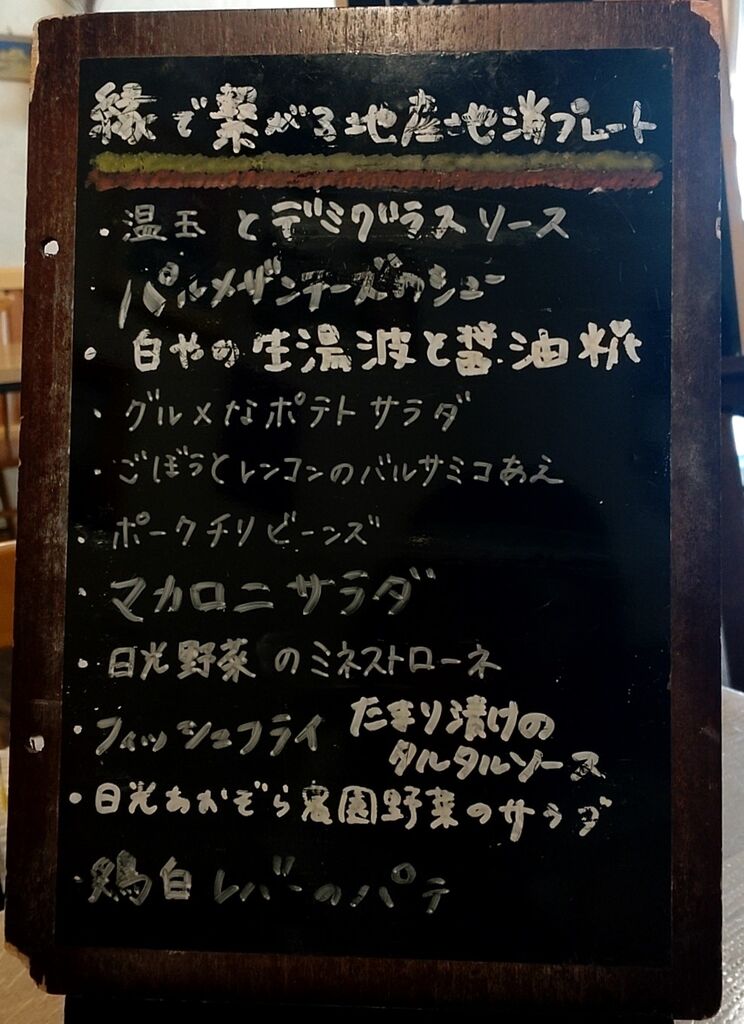 縁で繋がる地産地消プレート
・温玉とデミグラスソース
パルメザンチーズのシュー
・白やの生湯波と醤油糀
・グルメなポテトサラダ
・ごぼうとレンコンのバルサミコあえ
・ポークチリビーンズ
・マカロニサラダ
・日光野菜のミネストローネ
・フィッシュフライ たまり漬けの
タルタルソース
・日光あかぞら農園野菜のサラダ
・鶏白レバーのパテ